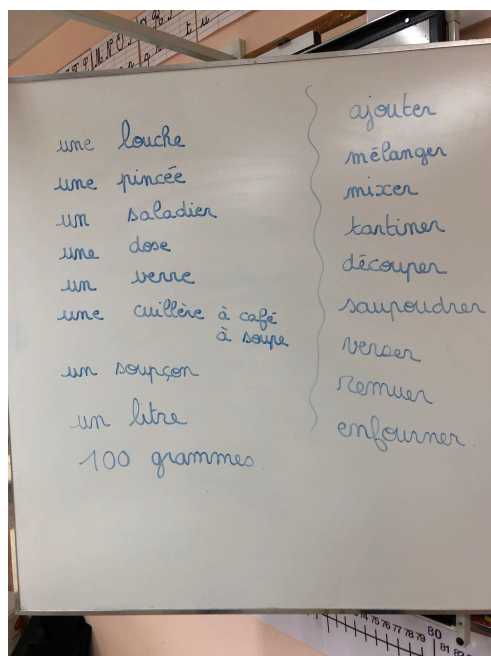 une louche
une pincée
un saladier
une dose
un verre
une cuillère à café
à soupe
un soupçon
un litre
100 grammes
ajouter
mélanger
mixer
tartiner
découper
saupoudrer
verser
remuer
enfourner.
74 75 76 77 78 79 80
81 82